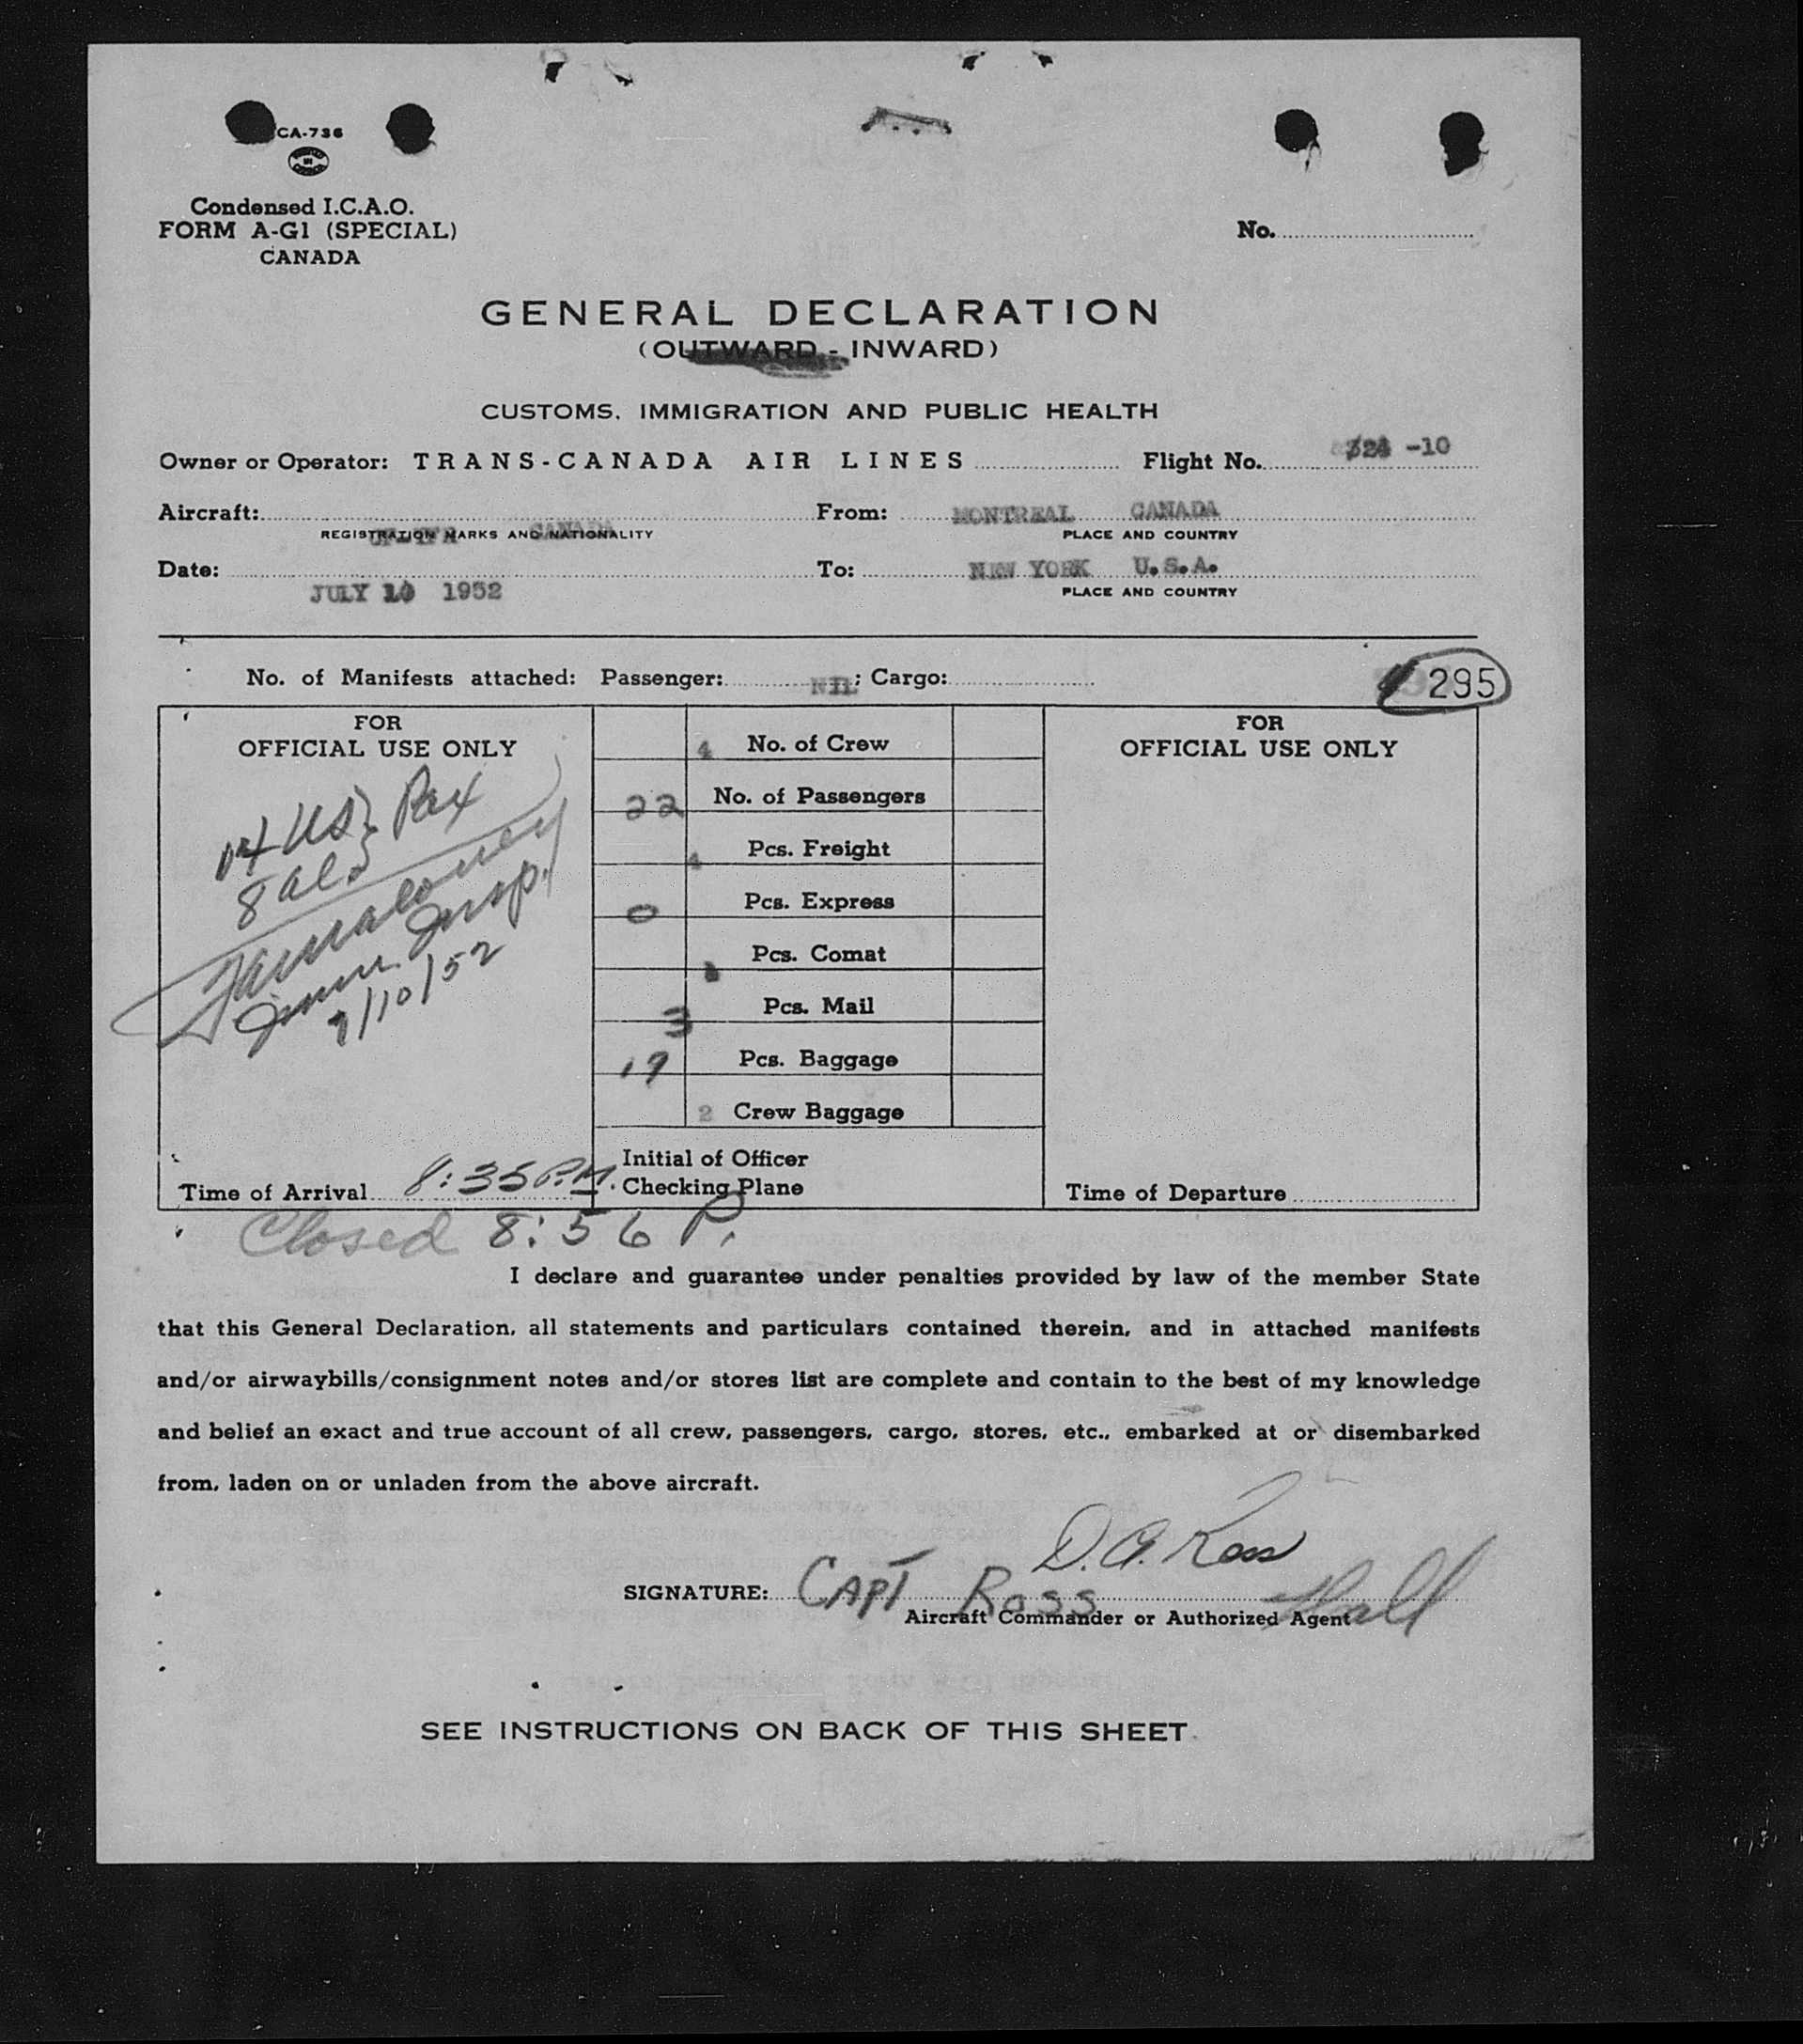 CA-736
Condensed I.C.A.O.
FORM A-G1 (SPECIAL)
CANADA
No.
GENERAL DECLARATION
(OUTWARD - INWARD)
CUSTOMS, IMMIGRATION AND PUBLIC HEALTH
Owner or Operator: TRANS-CANADA AIR LINES Flight No. -10
Aircraft: From: MONTREAL CANADA
CANADA
REGISTRATION MARKS AND NATIONALITY PLACE AND COUNTRY
Date: To: NEW YORK U.S.A.
JULY 10 1952 PLACE AND COUNTRY
No. of Manifests attached: Passenger: NIL; Cargo: 295
FOR
OFFICIAL USE ONLY
14 US} Pax
8 al.
Imm. Insp.
7/10/52
Time of Arrival 8:35 P.M.
4 No. of Crew
22 No. of Passengers
4 Pcs. Freight
0 Pcs. Express
Pcs. Comat
3 Pcs. Mail
19 Pcs. Baggage
2 Crew Baggage
Initial of Officer
Checking Plane
FOR
OFFICIAL USE ONLY
Time of Departure
Closed 8:56 P.
I declare and guarantee under penalties provided by law of the member State
that this General Declaration, all statements and particulars contained therein, and in attached manifests
and/or airwaybills/consignment notes and/or stores list are complete and contain to the best of my knowledge
and belief an exact and true account of all crew, passengers, cargo, stores, etc., embarked at or disembarked
from, laden on or unladen from the above aircraft.
D. A. Ross
SIGNATURE: CAPT ROSS Hall
Aircraft Commander or Authorized Agent
SEE INSTRUCTIONS ON BACK OF THIS SHEET